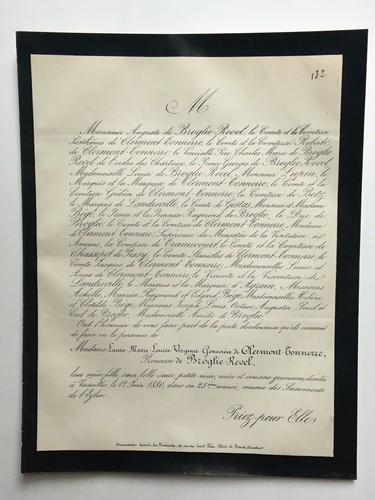 132
M
Monsieur Auguste de Broglie-Revel, le Comte et la Comtesse
de Clermont-Tonnerre, le Comte et la Comtesse Robert
de Clermont-Tonnerre, le Père Charles Marie de Broglie
Revel de l'ordre des Chartreux, le Prince Georges de Broglie-Revel,
Mademoiselle Louise de Broglie-Revel, Monsieur Lupin, le
Marquis et la Marquise de Clermont-Tonnerre, le Comte et la
Comtesse Gédéon de Clermont-Tonnerre, la Comtesse de
le Marquis de Landreville, le Comte de Monsieur et Madame
le Prince et la Princesse Raymond de Broglie, le Duc de
Broglie, le Comte et la Comtesse de Clermont-Tonnerre, Madame
de Clermont-Tonnerre, Supérieure du Monastère de la Visitation d'
Amiens, la Comtesse de Tramecourt, le Comte et la Comtesse de
Chassepot de Pissy, le Comte Stanislas de Clermont-Tonnerre, le
Comte Jacques de Clermont-Tonnerre, Mesdemoiselles Louise et
Anna de Clermont-Tonnerre, le Vicomte et la Vicomtesse de
Landreville, le Marquis et la Marquise d'Agrain, Messieurs
Maurice, Raymond et Edgard Mesdemoiselles Hélène
et Clotilde Messieurs Joseph, Louis, Octave, Augustin, Paul et
de Broglie, Mademoiselle Amélie de Broglie,
Ont l'honneur de vous faire part de la perte douloureuse qu'ils viennent
de faire en la personne de
Madame Laure Marie Louise Virginie Geneviève de Clermont-Tonnerre,
Princesse de Broglie-Revel,
leur mère, fille, sœur, belle-sœur, petite-nièce, nièce et cousine germaine, décédée
à Versailles, le 1880, dans sa 25ème année, munie des Sacrements
de l'Eglise.
Priez pour Elle!